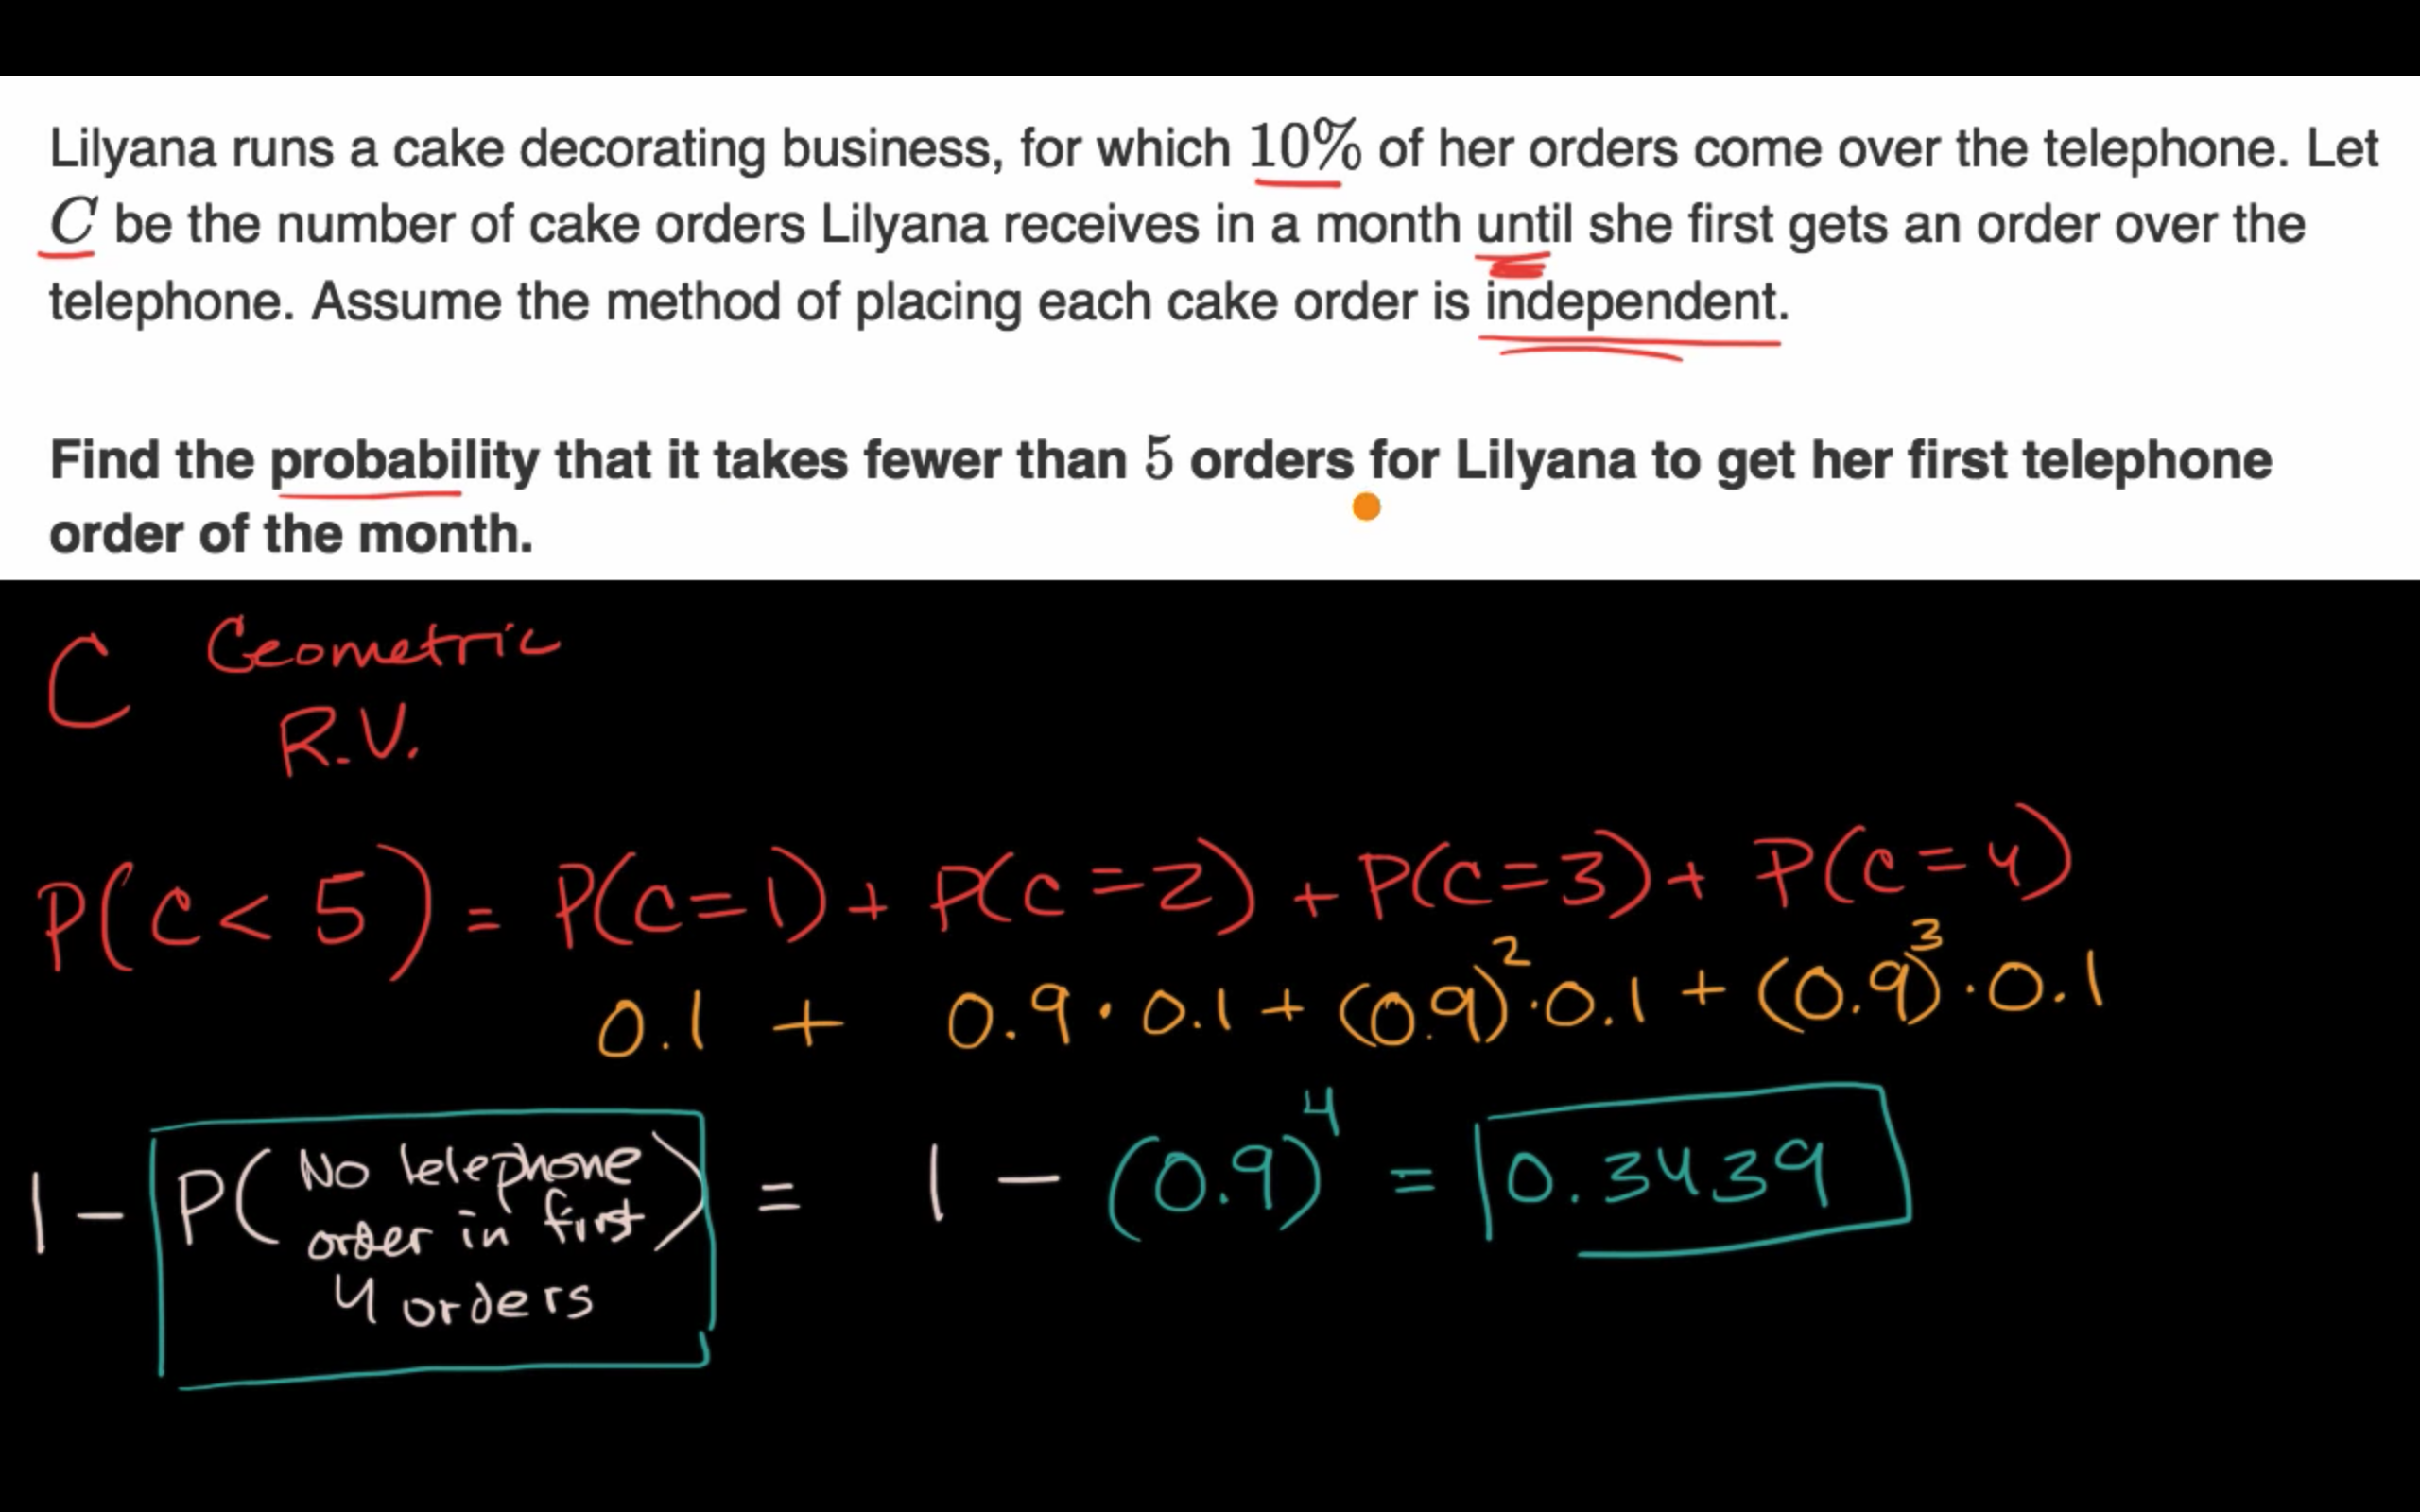 Lilyana runs a cake decorating business, for which 10% of her orders come over the telephone. Let
C be the number of cake orders Lilyana receives in a month until she first gets an order over the
telephone. Assume the method of placing each cake order is independent.
Find the probability that it takes fewer than 5 orders for Lilyana to get her first telephone
order of the month.
C Geometric
R.V.
P(C < 5) = P(C = 1) + P(C = 2) + P(C = 3) + P(C = 4)
0.1 + 0.9 · 0.1 + (0.9)² · 0.1 + (0.9)³ · 0.1
1 - P(No telephone order in first 4 orders) = 1 - (0.9)⁴ = 0.3439